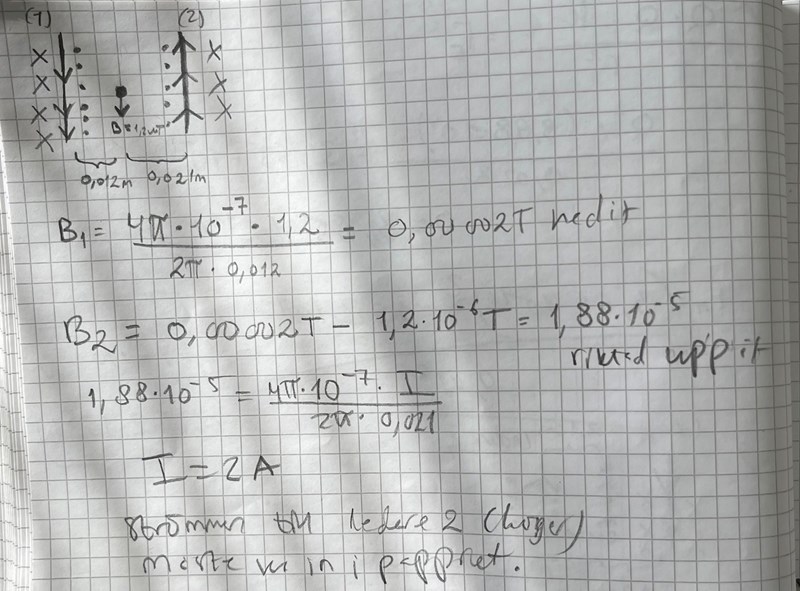 (1) (2)
B=1,2mT
0,012m 0,021m
B₁ = 4π·10⁻⁷·1,2 / 2π·0,012 = 0,00002T nedåt
B₂ = 0,00002T − 1,2·10⁻⁶T = 1,88·10⁻⁵
riktad uppåt
1,88·10⁻⁵ = 4π·10⁻⁷·I / 2π·0,021
I = 2A
strömmen till ledare 2 (höger)
måste in i pappret.